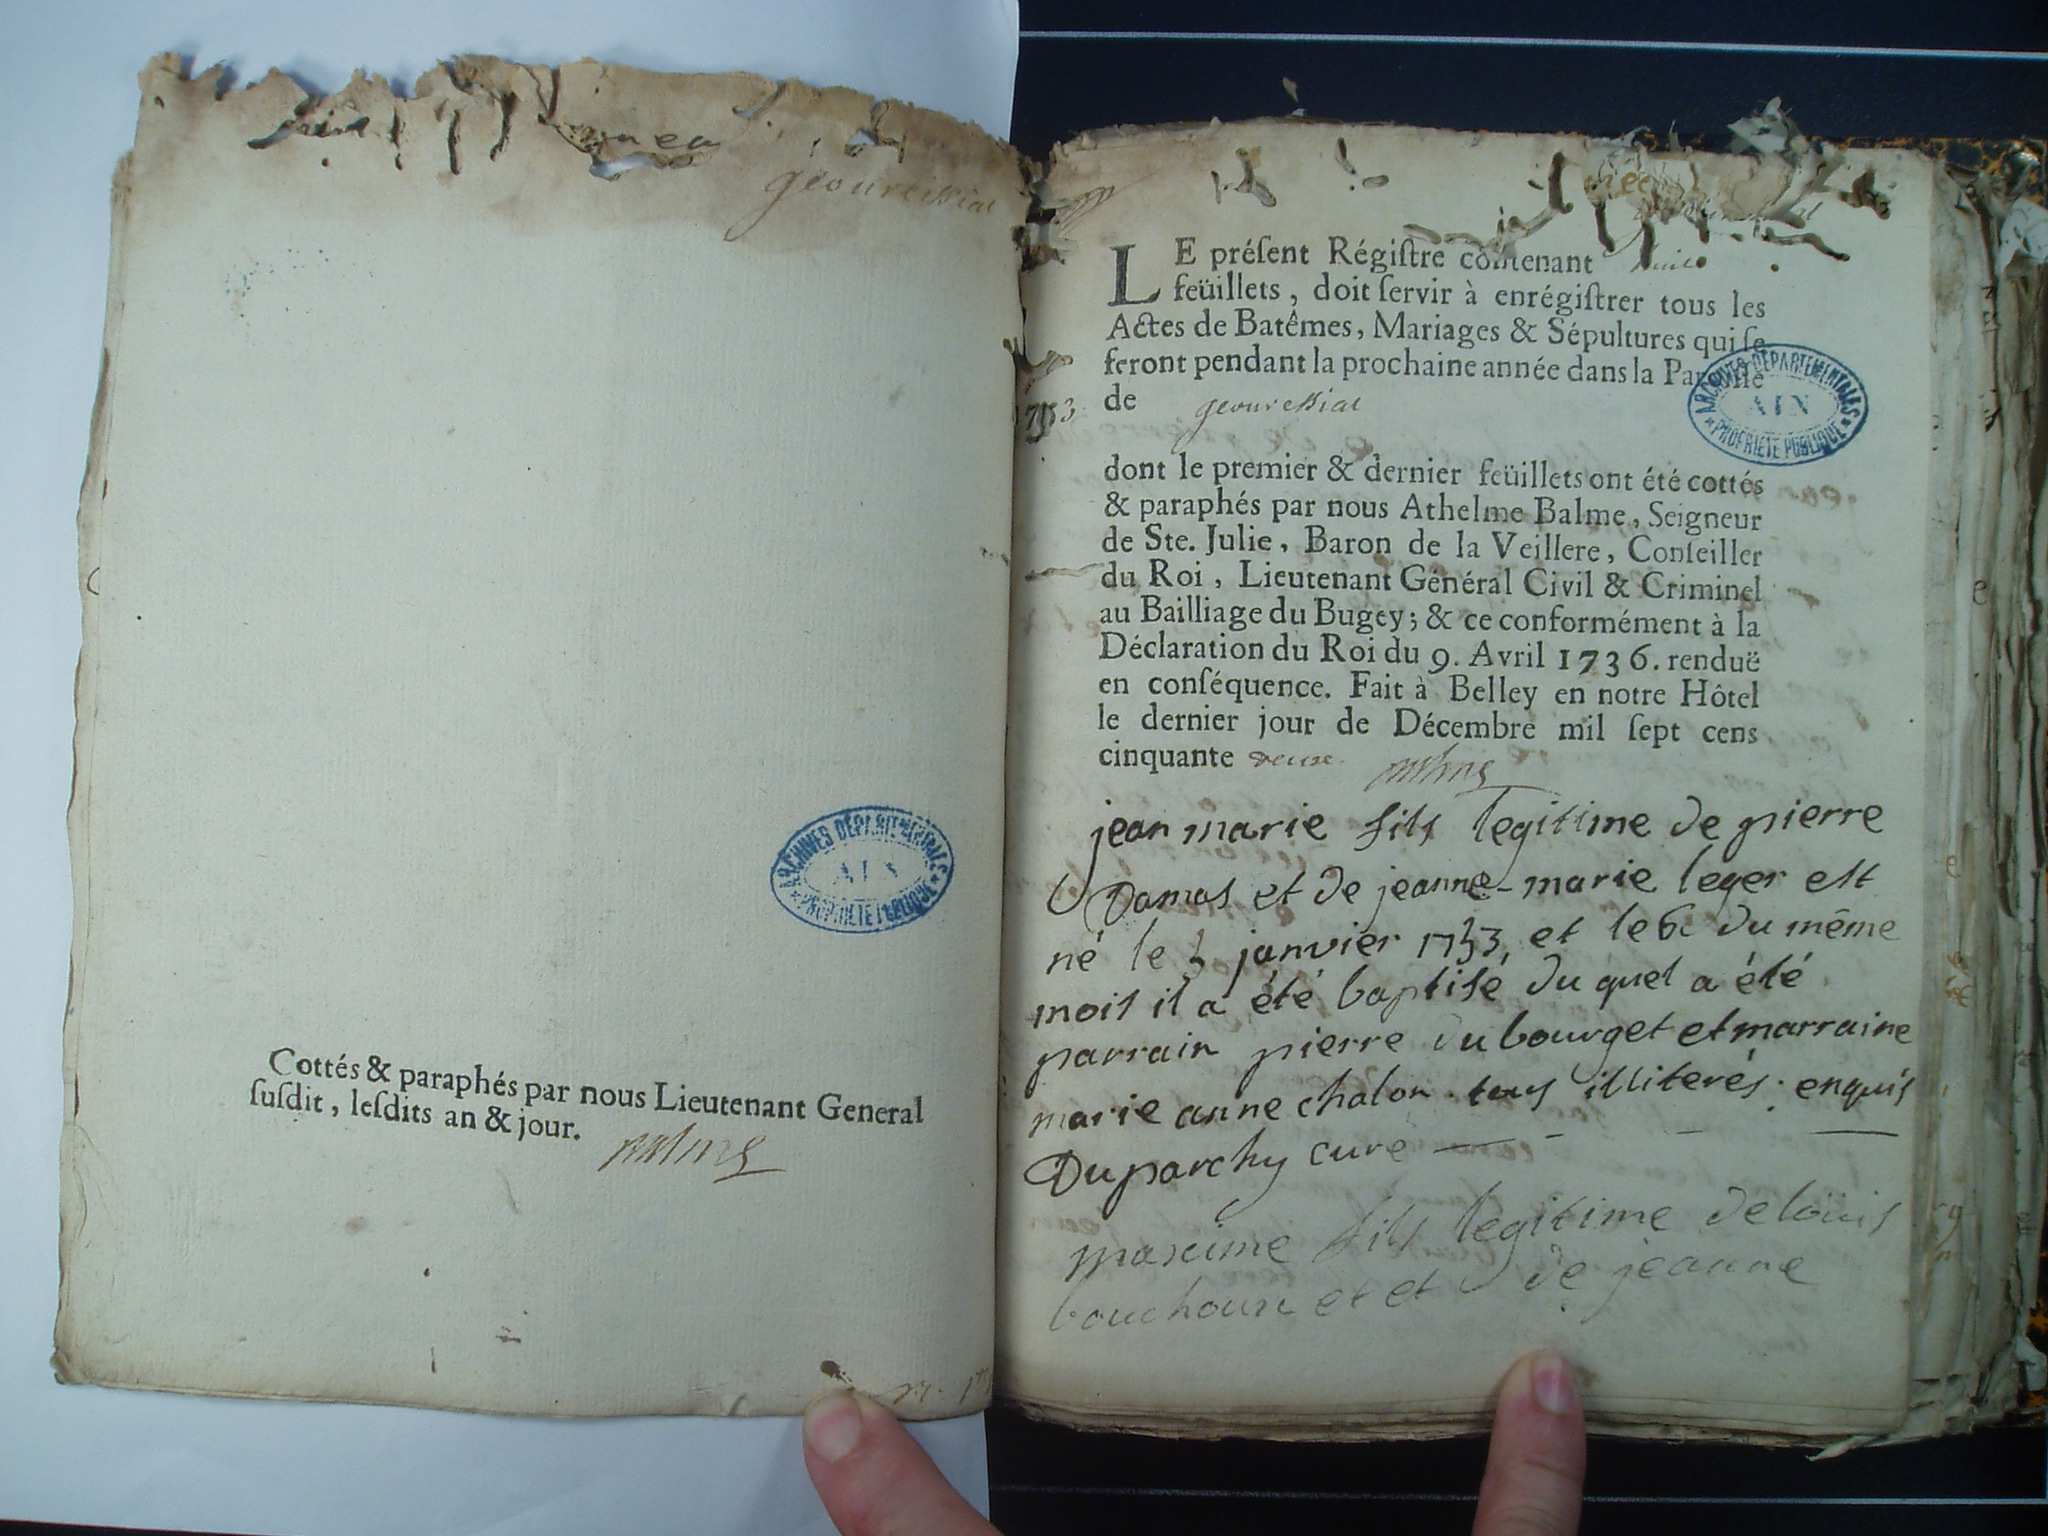 geoureissiat
Cottés & paraphés par nous Lieutenant General
susdit, lesdits an & jour.
Balme
ARCHIVES DÉPARTEMENTALES
AIN
PROPRIÉTÉ PUBLIQUE
LE préſent Régiſtre contenant huit
feüillets, doit ſervir à enrégiſtrer tous les
Actes de Batêmes, Mariages & Sépultures qui ſe
feront pendant la prochaine année dans la Paroiſſe
1753
de geoureissiat
ARCHIVES DÉPARTEMENTALES
AIN
PROPRIÉTÉ PUBLIQUE
dont le premier & dernier feüillets ont été cottés
& paraphés par nous Athelme Balme, Seigneur
de Ste. Julie, Baron de la Veillere, Conſeiller
du Roi, Lieutenant Général Civil & Criminel
au Bailliage du Bugey; & ce conformément à la
Déclaration du Roi du 9. Avril 1736. renduë
en conſéquence. Fait à Belley en notre Hôtel
le dernier jour de Décembre mil ſept cens
cinquante deux.
Balme
jean marie fils legitime de pierre
Damas et de jeanne-marie leger est
né le 5 janvier 1753, et le 6e du même
mois il a été baptisé, du quel a été
parrain pierre du bourget et marraine
marie anne chalon. tous illiterés. enquis
Duparchy curé
maxime fils legitime de loüis
bouchoux et et de jeanne